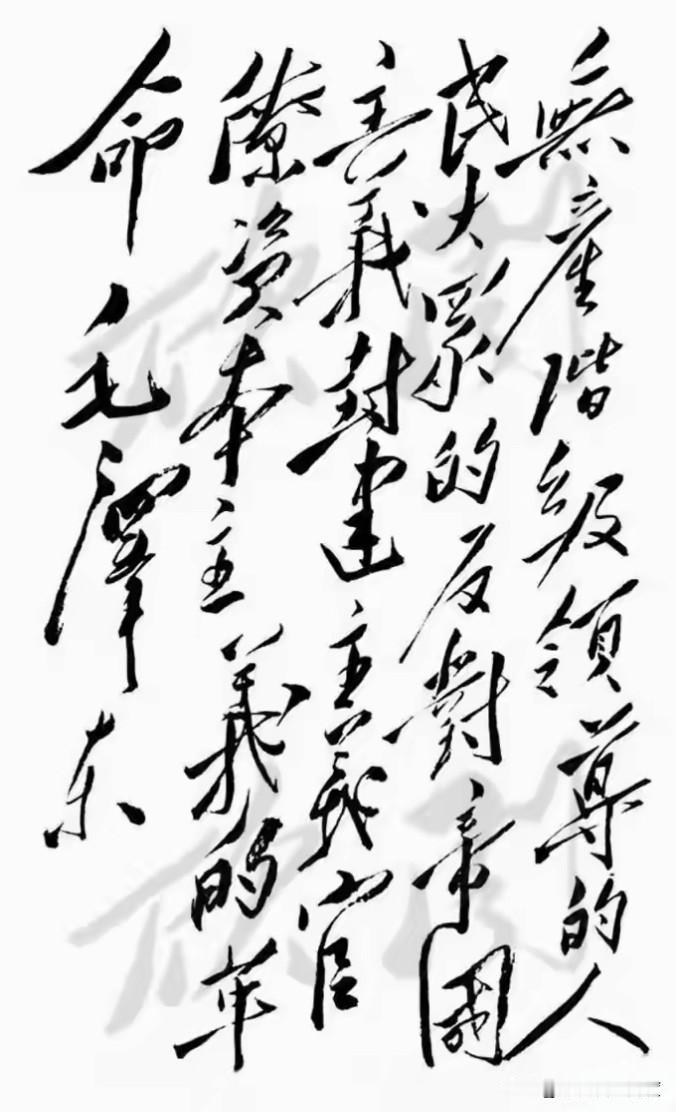 無產階級領導的人
民大衆的反對帝國
主義封建主義官
僚資本主義的革
命 毛澤东